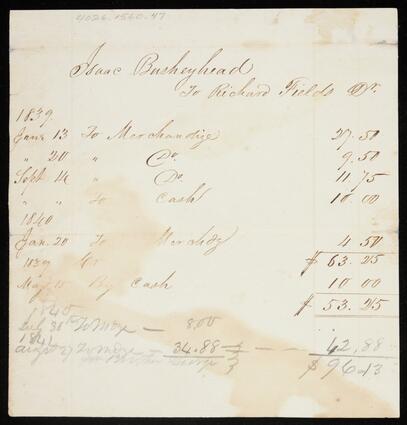 4026.1560.47
Isaac Busheyhead
To Richard Fields Dr.
1839
June 13 To Merchandize 27.50
" 20 " Do. 9.50
Sept 14 " Do 11.75
" " To Cash 10.00
1840
Jan. 20 To Merchdz 4.50
1839 Cr $ 63.25
May 15 By Cash 10.00
$ 53.25
1840
July 31 To Mdze — 8.00
1841
To Mdze 34.88 — 42.88
$ 96.13